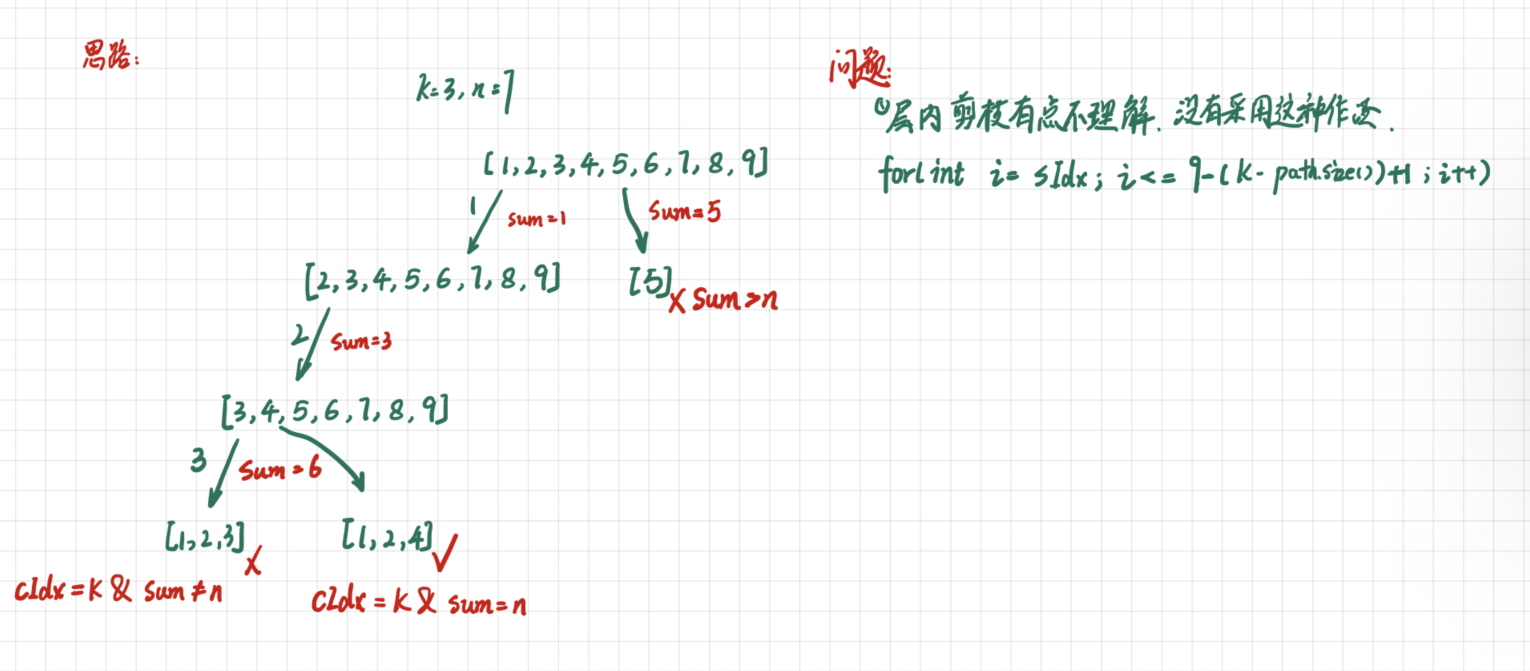 思路:
k=3, n=7
[1,2,3,4,5,6,7,8,9]
1 sum=1
sum=5
[2,3,4,5,6,7,8,9]
[5] x sum>n
2 sum=3
[3,4,5,6,7,8,9]
3 sum=6
[1,2,3] x
[1,2,4] ✓
cIdx=k & sum≠n
cIdx=k & sum=n
问题:
①层内剪枝有点不理解.没有采用这种作法.
for(int i= sIdx; i<= 9-(k- path.size())+1; i++)